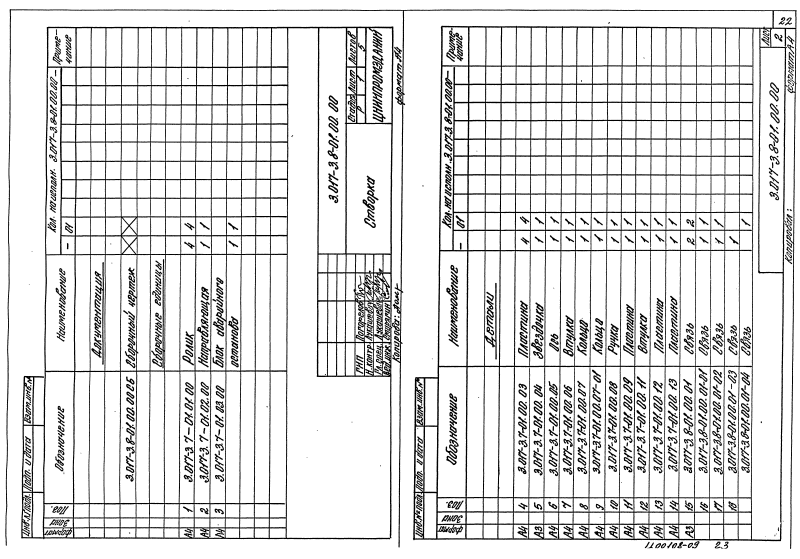 Инв.№подл. Подп. и дата Взам.инв.№
формат Зона Поз. Обозначение Наименование Кол. на исполн. 3.017-3.8-01.00.00- Приме-чание
– 01
Документация
3.017-3.8-01.00.00СБ Сборочный чертеж
Сборочные единицы
А4 1 3.017-3.7-01.01.00 Ролик 4 4
А4 2 3.017-3.7-01.02.00 Направляющая 1 1
А4 3 3.017-3.7-01.03.00 Блок аварийного
останова 1
3.017-3.8-01.00.00
ГИП
Н.контр.
Отворка
Стадия Лист Листов
Р 1 5
ЦНИИПРОМЗДАНИЙ
Копировал:
формат А4
22
Инв.№подл. Подп. и дата Взам.инв.№
формат Зона Поз. Обозначение Наименование Кол. на исполн. 3.017-3.8-01.00.00- Приме-чание
– 01
Детали
А4 4 3.017-3.7-01.00.03 Пластина 4 4
А3 5 3.017-3.7-01.00.04 Звездочка 1 1
А4 6 3.017-3.7-01.00.05 Ось 1 1
А4 7 3.017-3.7-01.00.06 Втулка 1 1
А4 8 3.017-3.7-01.00.07 Кольцо 1 1
А4 9 3.017-3.7-01.00.07-01 Кольцо 1 1
А4 10 3.017-3.7-01.00.08 Ручка 1 1
А4 11 3.017-3.7-01.00.09 Пластина 1 1
А4 12 3.017-3.7-01.00.11 Втулка 1 1
А4 13 3.017-3.7-01.00.12 Пластина 1 1
А4 14 3.017-3.7-01.00.13 Пластина 1 1
А3 15 3.017-3.8-01.00.01 Связь 2 2
16 3.017-3.8-01.00.01-01 Связь 1 1
17 3.017-3.8-01.00.01-02 Связь 1 1
18 3.017-3.8-01.00.01-03 Связь 1
3.017-3.8-01.00.01-04 Связь 1
3.017-3.8-01.00.00
Лист
2
Копировал:
формат А4
1Т00108-09 23